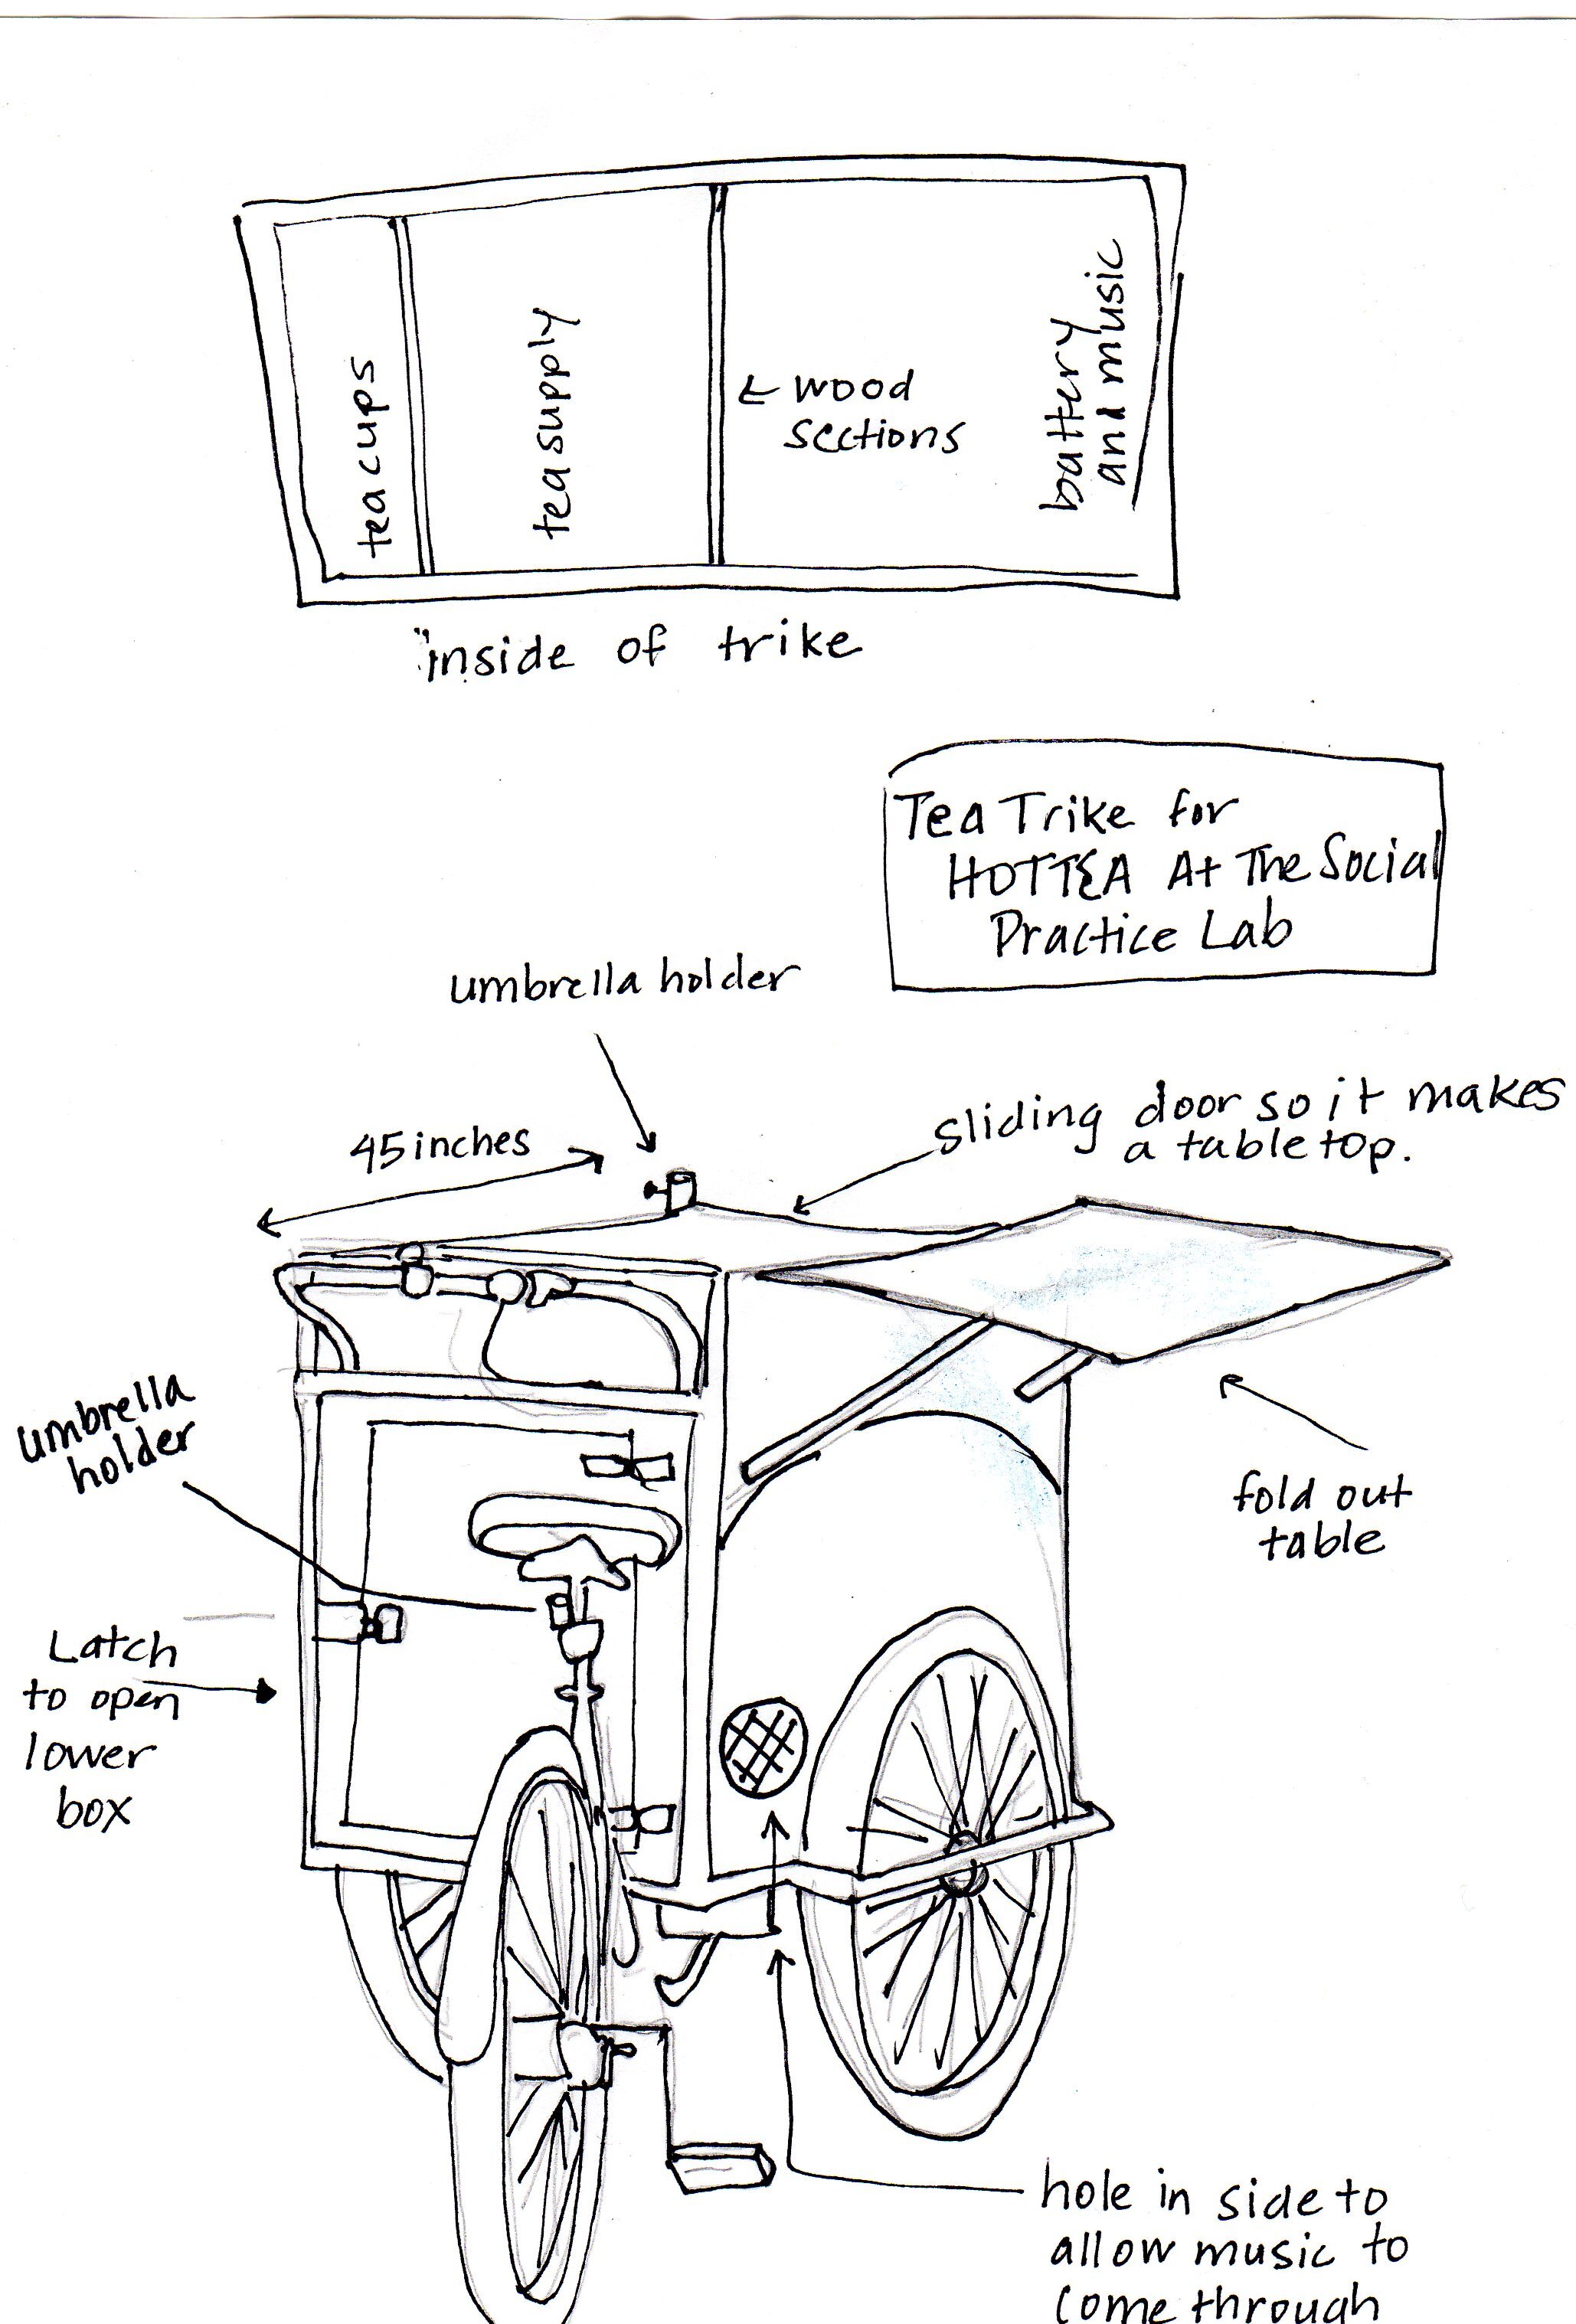 tea cups
tea supply
wood
sections
battery
and music
"inside of trike
Tea Trike for
HOTTEA At The Social
Practice Lab
umbrella holder
45 inches
sliding door so it makes
a table top.
umbrella
holder
fold out
table
Latch
to open
lower
box
hole in side to
allow music to
come through